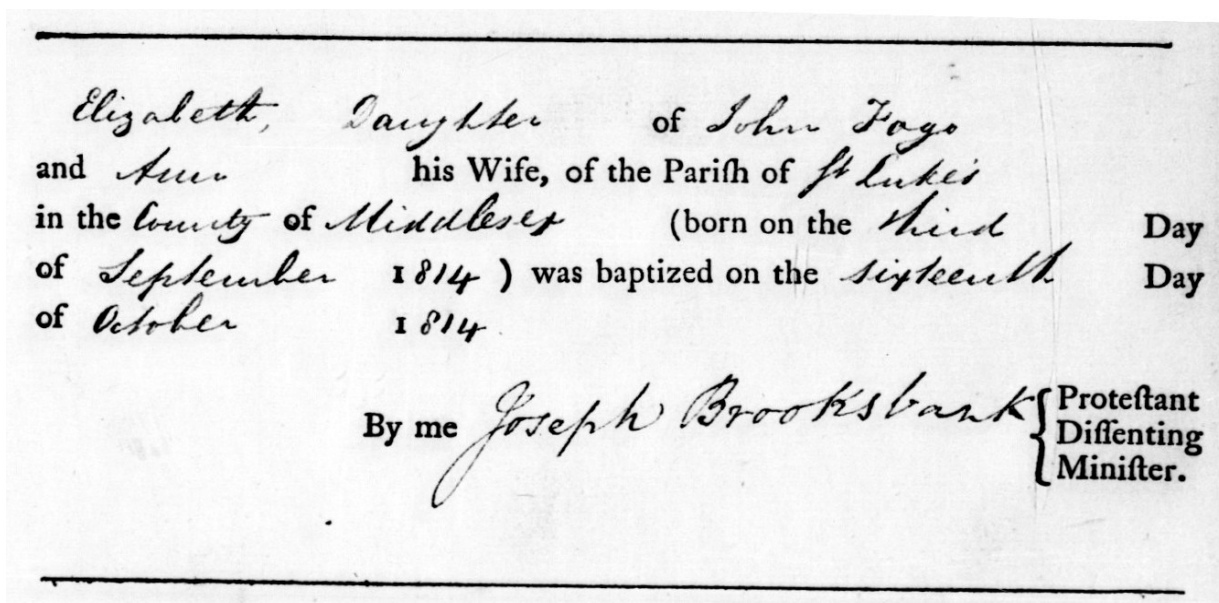 Elizabeth, Daughter of John Fogo
and Ann his Wife, of the Pariſh of St Lukes
in the County of Middlesex (born on the third Day
of September 1814) was baptized on the sixteenth Day
of October 1814
By me Joseph Brooksbank { Proteſtant
Diſſenting
Miniſter.